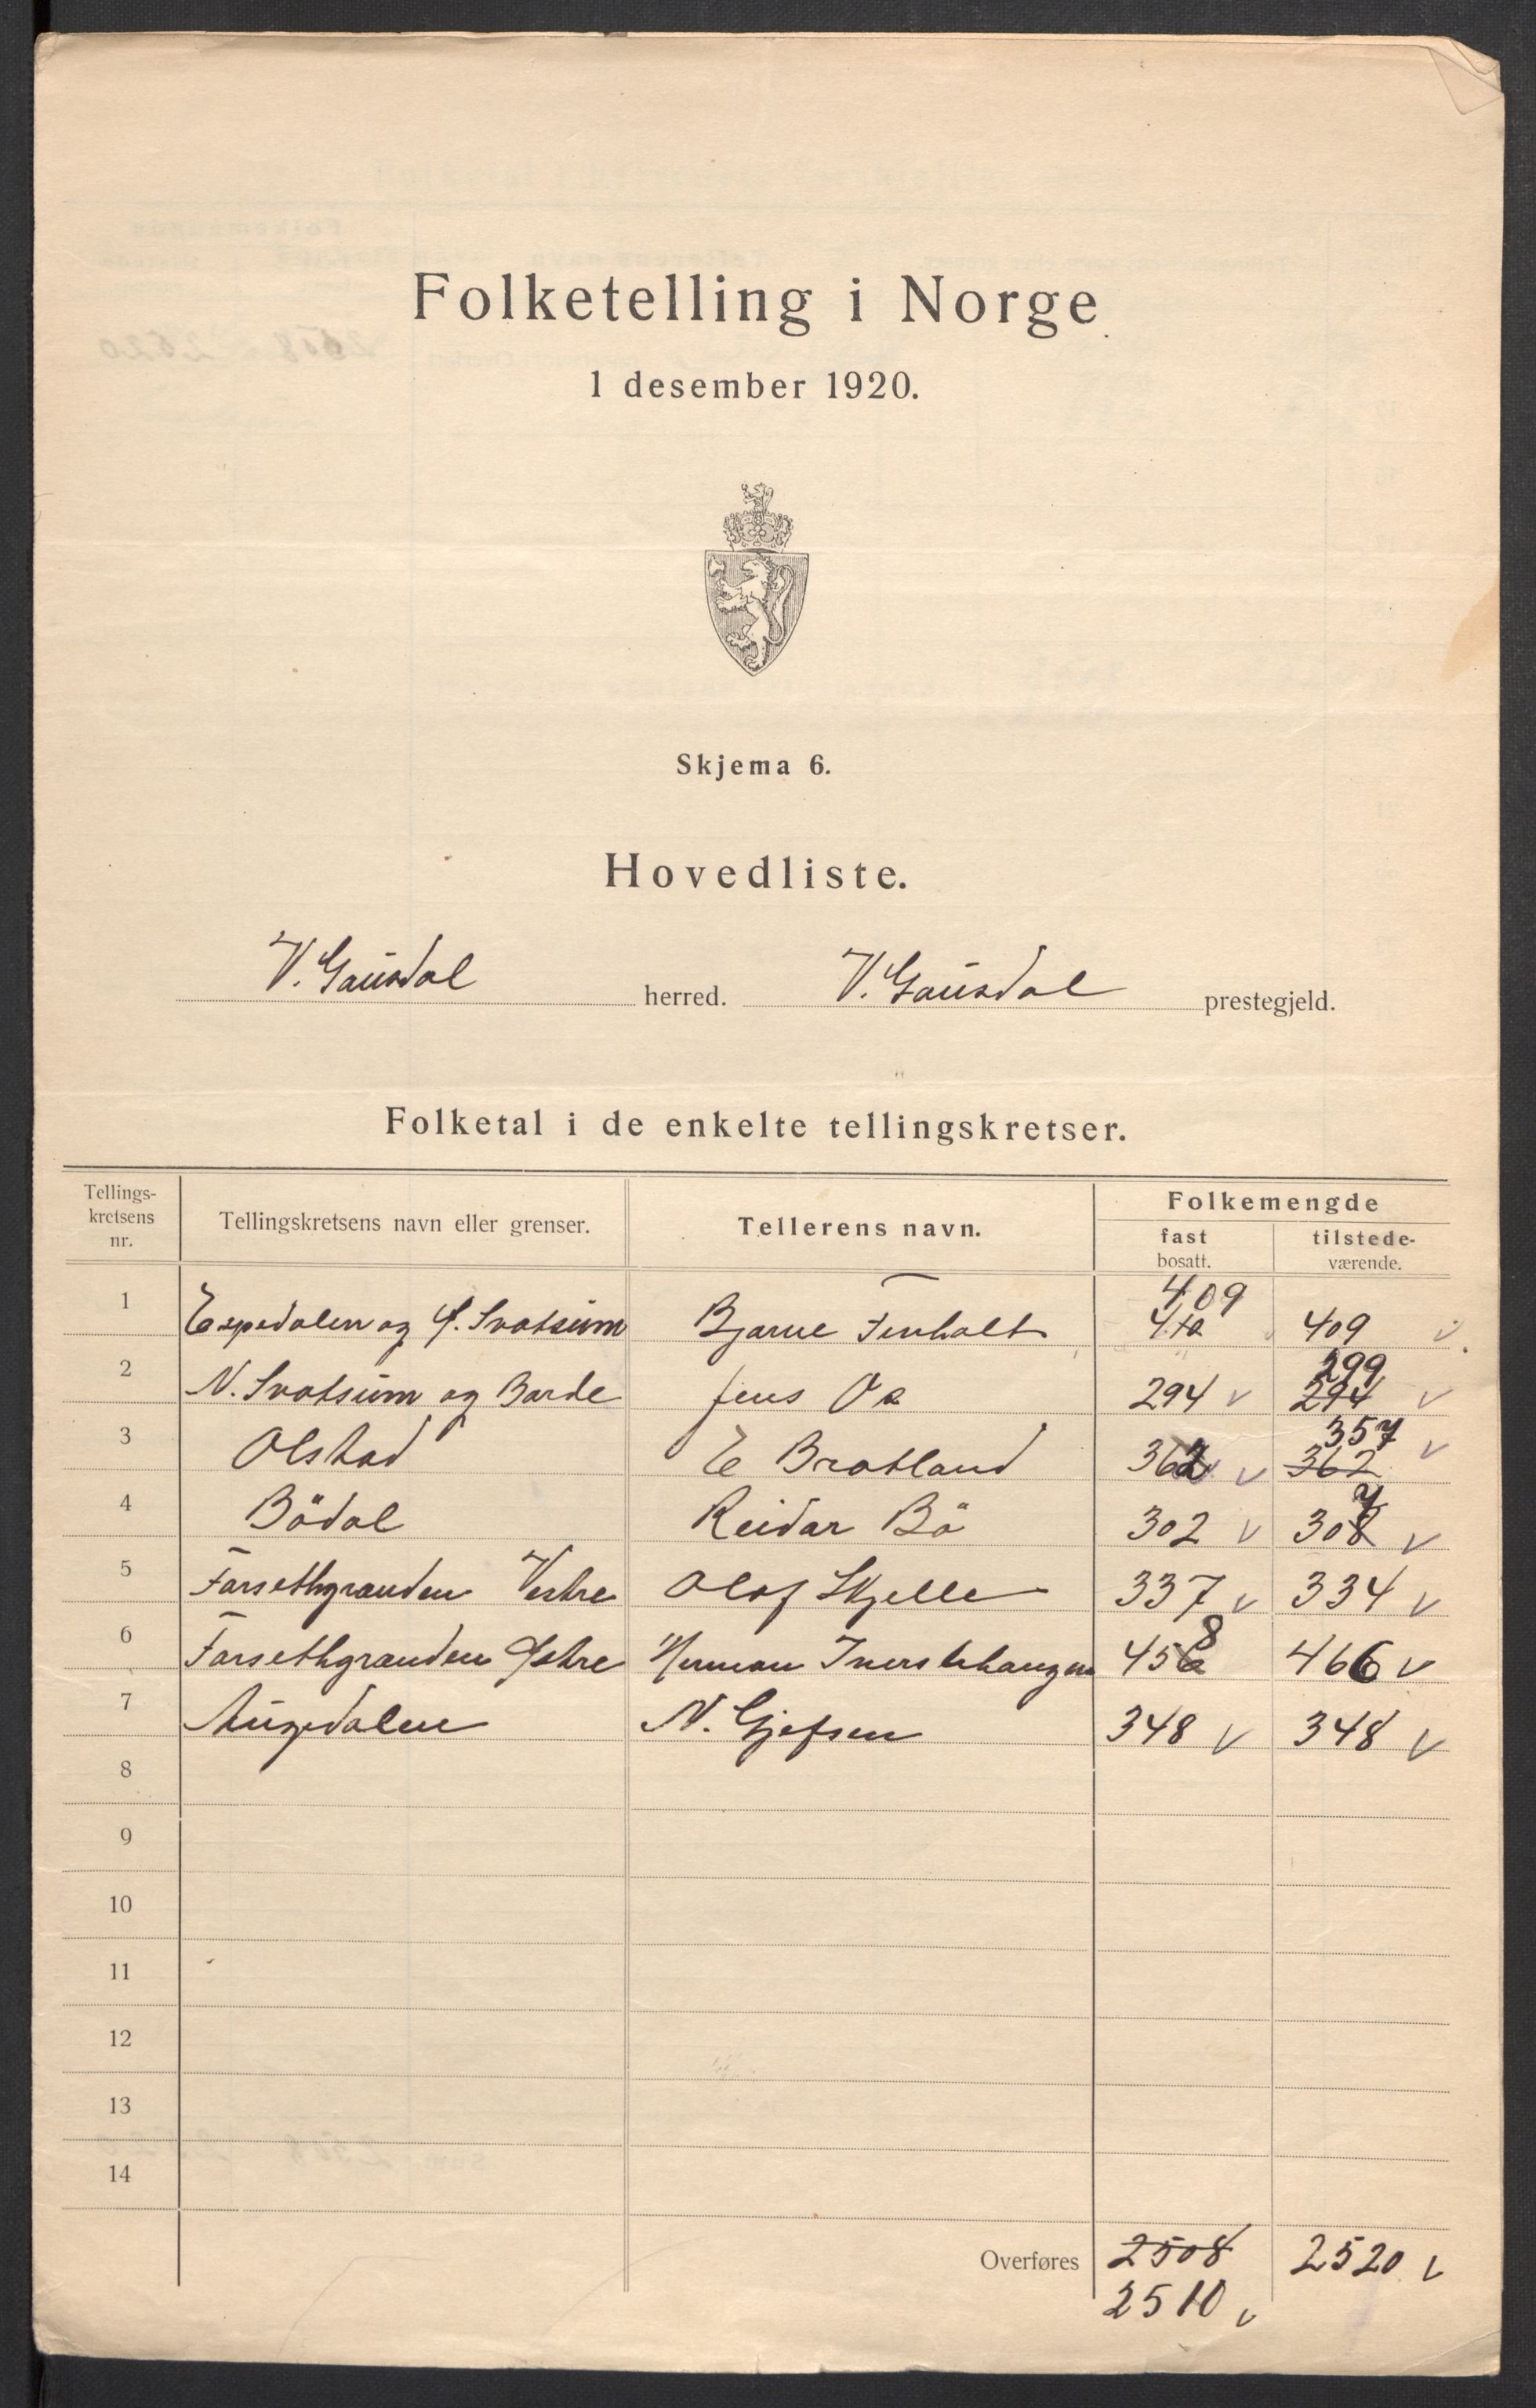 Folketelling i Norge
1 desember 1920.
Skjema 6.
Hovedliste.
V. Gausdal herred. V. Gausdal prestegjeld.
Folketal i de enkelte tellingskretser.
Tellings-kretsens nr. Tellingskretsens navn eller grenser. Tellerens navn. Folkemengde
fast bosatt. tilstede-værende.
409
1 Espedalen og Svatsum Bjarne Fenholt 410 409 v
299
2 N. Svatsum og Barde Jens 294 v 294 v
357
3 Olstad E Bratland 362 v 362 v
7
4 Bödal Reidar Bö 302 v 308 v
5 Forsethgranden Vestre Olaf Skjelle 337 v 334 v
8
6 Forsethgranden Østre Herman Iverslehaugen 456 466 v
7 Augedalen N. Gjefsen 348 v 348 v
8
9
10
11
12
13
14
Overføres 2508 2520 v
2510 v